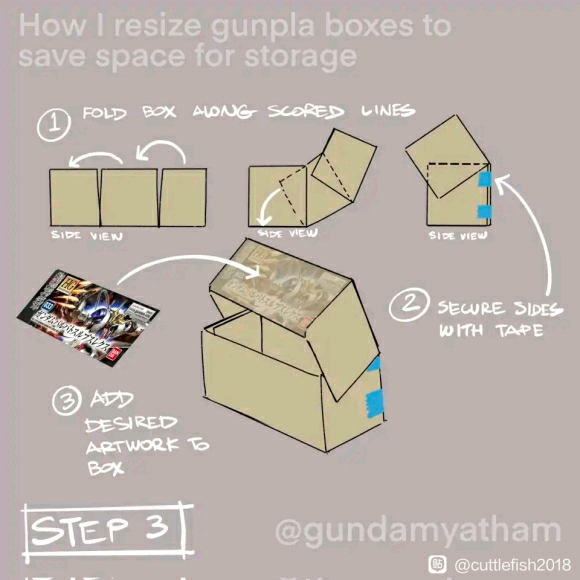 How I resize gunpla boxes to
save space for storage
1 FOLD BOX ALONG SCORED LINES
SIDE VIEW
SIDE VIEW
SIDE VIEW
2 SECURE SIDES
WITH TAPE
HG
ガンダムバルバトスルプスレクス
3 ADD
DESIRED
ARTWORK TO
BOX
STEP 3
@gundamyatham
@cuttlefish2018